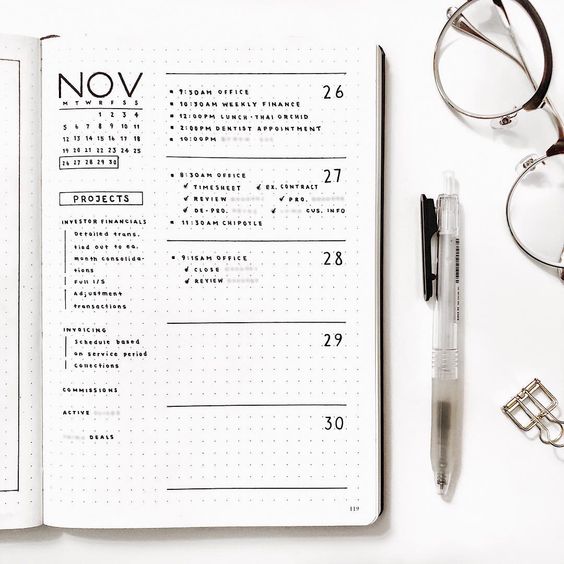 NOV
M T W R F S S
1 2 3 4
5 6 7 8 9 10 11
12 13 14 15 16 17 18
19 20 21 22 23 24 25
26 27 28 29 30
PROJECTS
INVESTOR FINANCIALS
Detailed trans.
tied out to ea.
month consolida-
tions
Full I/S
Adjustment
transactions
INVOICING
Schedule based
on service period
Collections
COMMISSIONS
ACTIVE
DEALS
26
9:30AM OFFICE
10:30AM WEEKLY FINANCE
12:00PM LUNCH - THAI ORCHID
2:00PM DENTIST APPOINTMENT
10:00PM
27
8:30AM OFFICE
✓ TIMESHEET ✓ EX. CONTRACT
✓ REVIEW ✓ PRO.
✓ DE-PRO. ✓ CUS. INFO
11:30AM CHIPOTLE
28
9:15AM OFFICE
✓ CLOSE
✓ REVIEW
29
30
119